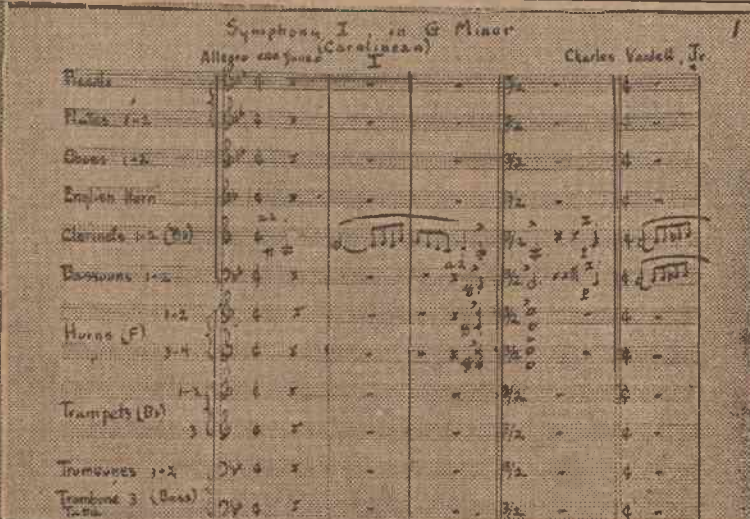 Symphony I, in G Minor
1
(Carolinean)
Allegro
I
Charles Vardell, Jr.
Flutes 1-2
Oboes 1-2
English Horn
Clarinets 1-2 (Bb)
a2
Bassoons 1-2
a2
1-2
Horns (F)
3-4
1-2
Trumpets (Bb)
3
Trombones 1-2
Trombone 3 (Bass)
Tuba